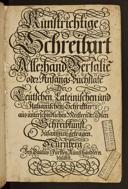 Kunstrichtige
Schreibart
Allerhand Versalie
oder AnfangsBuchstabe
Der
Teutschen, Lateinischen und
Italianischen Schrifften
aus unterschiedlichen Meistern der Edlen
Schreibkunst
zusammen getragen.
Nürnberg